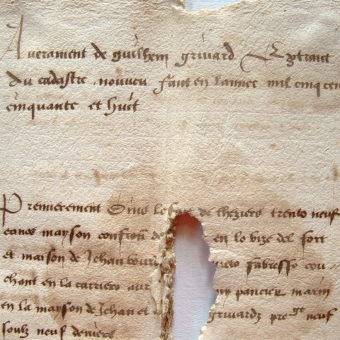 Averament de guilhem griuard Extraict
du cadastre nouveu faict en lannee mil cinq cen
cinquante et huit
Premierement dins le de theziers trente neuf
canes mayson confron de en lo vize del fort
et maison de Jehan
chant en la carriero pancier marin
en la mayson de Jehan et griuardz
soulz neuf deniers